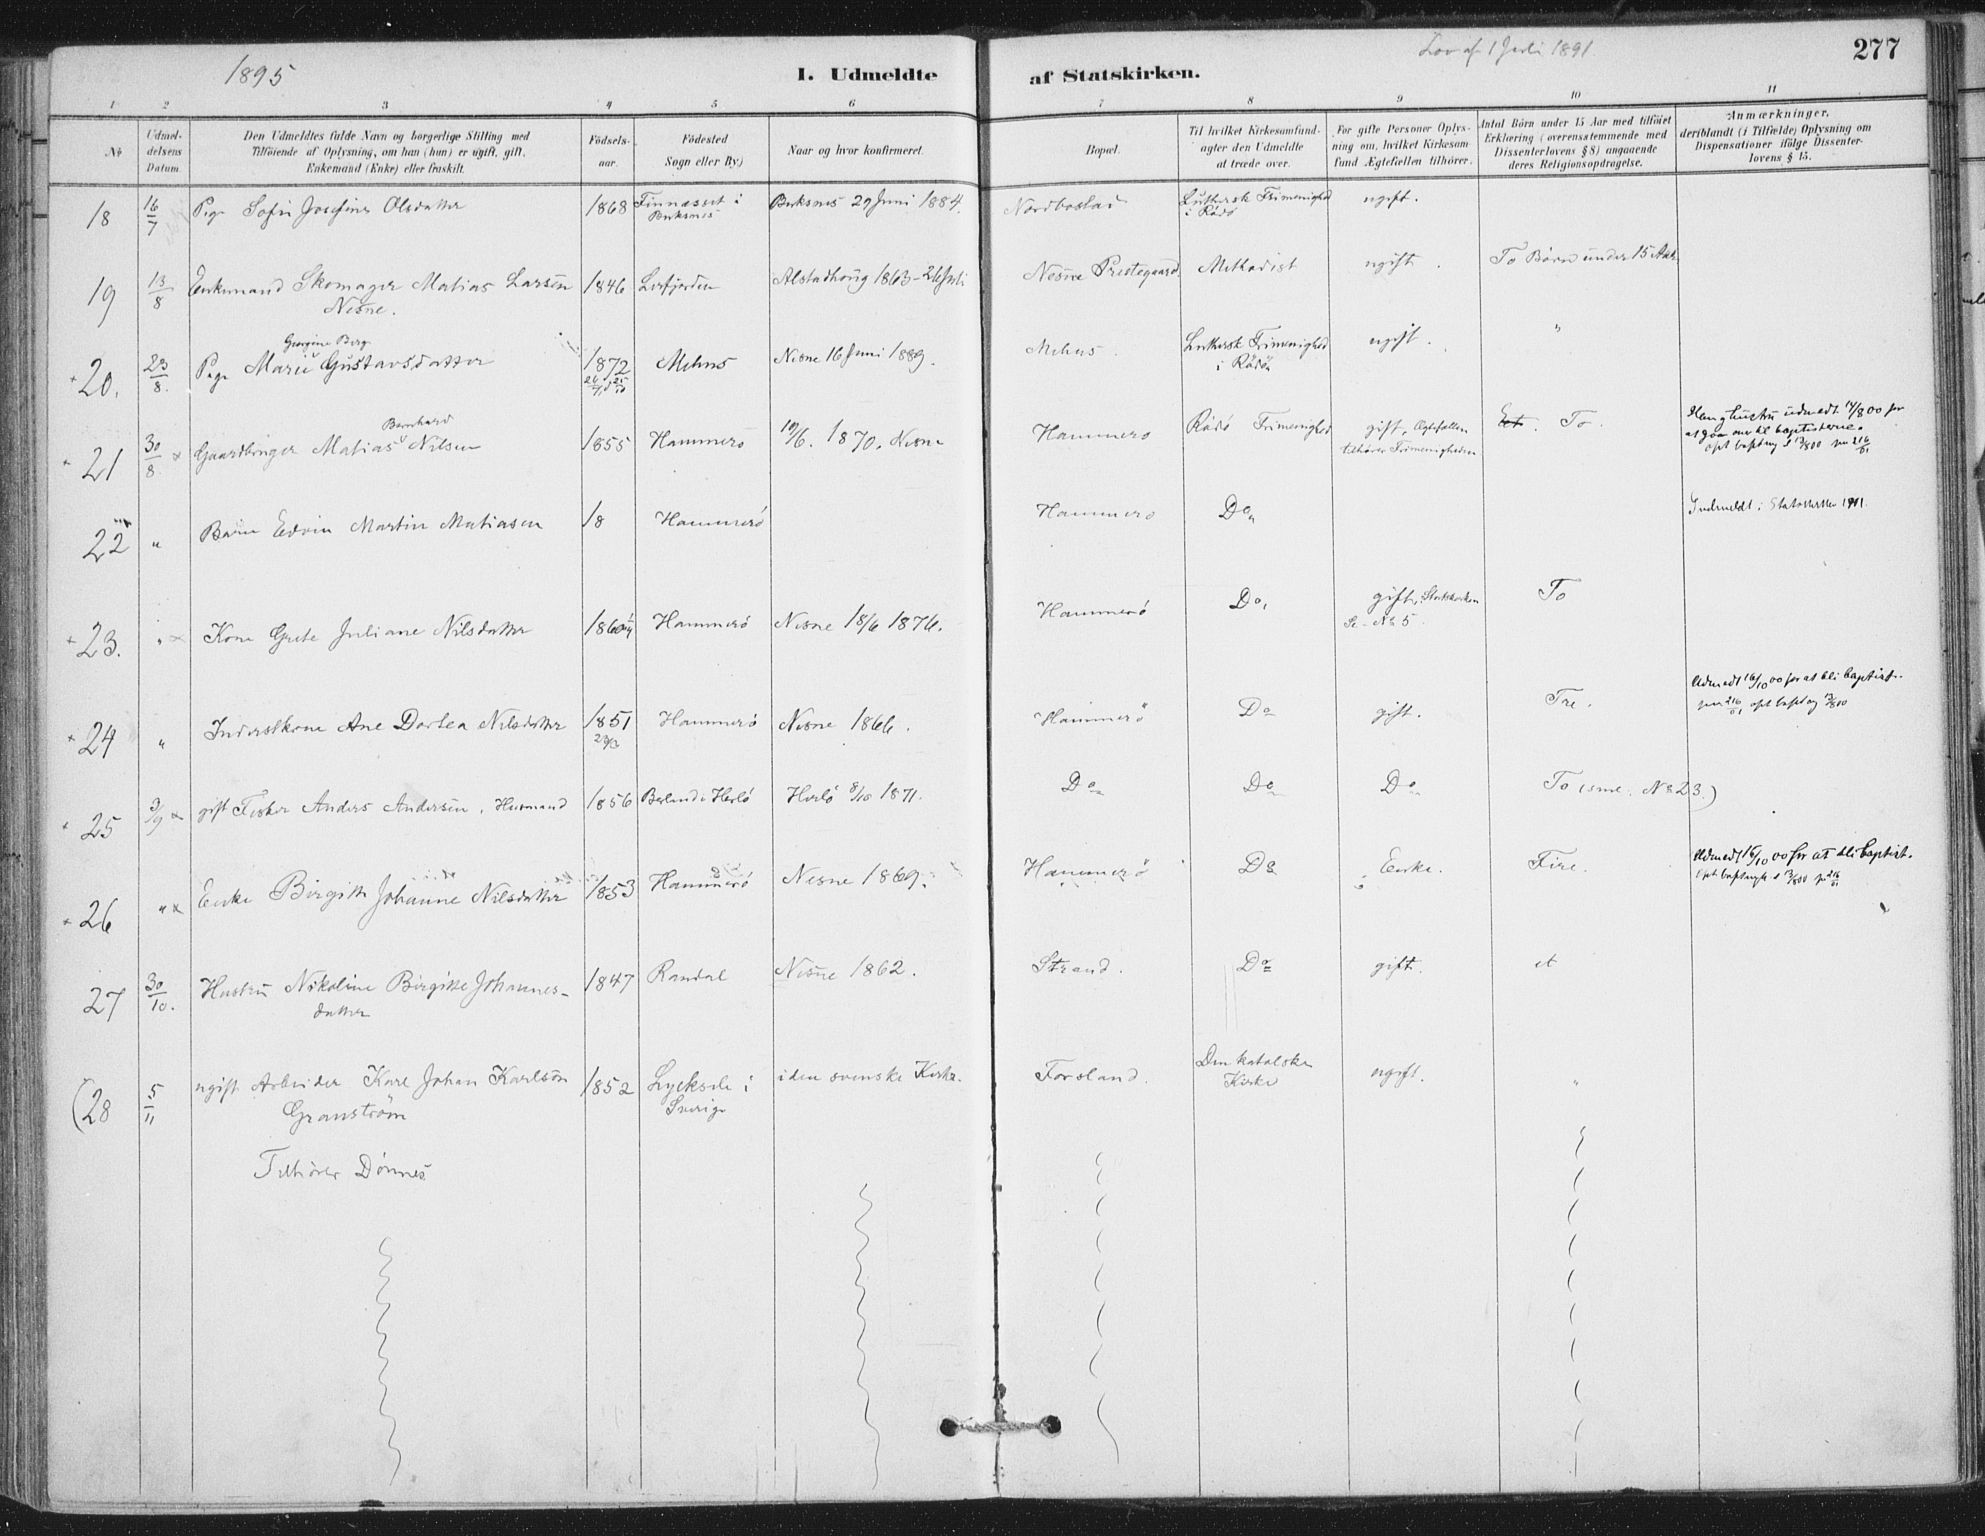 1895
I. Udmeldte af Statskirken.
Lov af 1 Juli 1891
277
1 2 3 4 5 6 7 8 9 10 11
No
Udmel-
delsens
Datum.
Den Udmeldtes fulde Navn og borgerlige Stilling med
Tilföiende af Oplysning, om han (hun) er ugift, gift,
Enkemand (Enke) eller fraskilt.
Födsels-
aar.
Födested
Sogn eller By.)
Naar og hvor konfirmeret.
Bopæl.
Til hvilket Kirkesamfund-
agter den Udmeldte
at træde over.
For gifte Personer Oplys-
ning om, hvilket Kirkesam-
fund Ægtefællen tilhörer.
Antal Börn under 15 Aar med tilföiet
Erklæring (overensstemmende med
Dissenterlovens § 8) angaaende
deres Religionsopdragelse.
Anmærkninger,
deriblandt (i Tilfælde) Oplysning om
Dispensationer ifölge Dissenter-
lovens § 15.
18 16/7 Pige Sofie Josefine Olsdatter 1868 Finnæsset i Buksnes Buksnes 29 Juni 1884. Nordbostad Luthersk Frimenighed i Rödö ugift.
19 13/8 Enkemand Skomager Matias Larsen 1846 Leirfjorden Alstadhoug 1863 - 26 Juli Nesne Prestegaard Methodist ugift. To Børn under 15 Aar
Nesne.
Georgine Berg
20. 23/8. Pige Marie Gustavsdatter 1872 Mehus Nesne 16 Juni 1889. Mehus. Luthersk Frimenighed i Rödö ugift. "
Bernhard
21 30/8 x Gaardbruger Matias Nilsen 1855 Hammerö 19/6. 1870. Nesne Hammerö Rödö Frimenighed gift, Ægtefællen tilhører Frimenigheden Et. To.
Han og hustru udmeldt 14/8 00 for
at gaa over til baptisterne.
22 " Barn Edvin Martin Matiasen 18 Hammerö Hammerö Do. Indmeldt i Statskirken 1911.
23. " x Kone Grete Juliane Nilsdatter 1860 Hammerö Nesne 18/6 1876. Hammerö Do. gift, Statskirken To
Se No 5.
24 " Inderstkone Ane Dortea Nilsdatter 1851 Hammerö Nesne 1866. Hammerö Do gift. Tre.
Udmeldt 16/10 00 for at bli baptist.
25 3/9 x gift Fisker Anders Andersen, Husmand 1856 Herlö Herlö 8/10 1871. Do Do Do To (sml. No 23.)
26 " x Enke Birgitte Johanne Nilsdatter 1853 Hammerö Nesne 1869. Hammerö Do Enke. Fire.
Udmeldt 16/10 00 for at bli baptist.
27 30/10. Hustru Nikoline Birgitte Johannes-
datter 1847 Randal Nesne 1862. Strand. Do gift. et
(28 5/11 ugift Arbeider Karl Johan Karlsön
Granström 1852 Lycksele i Sverige i den svenske Kirke. Forsland. Den katolske Kirke ugift. "
Tilhører Dönnes